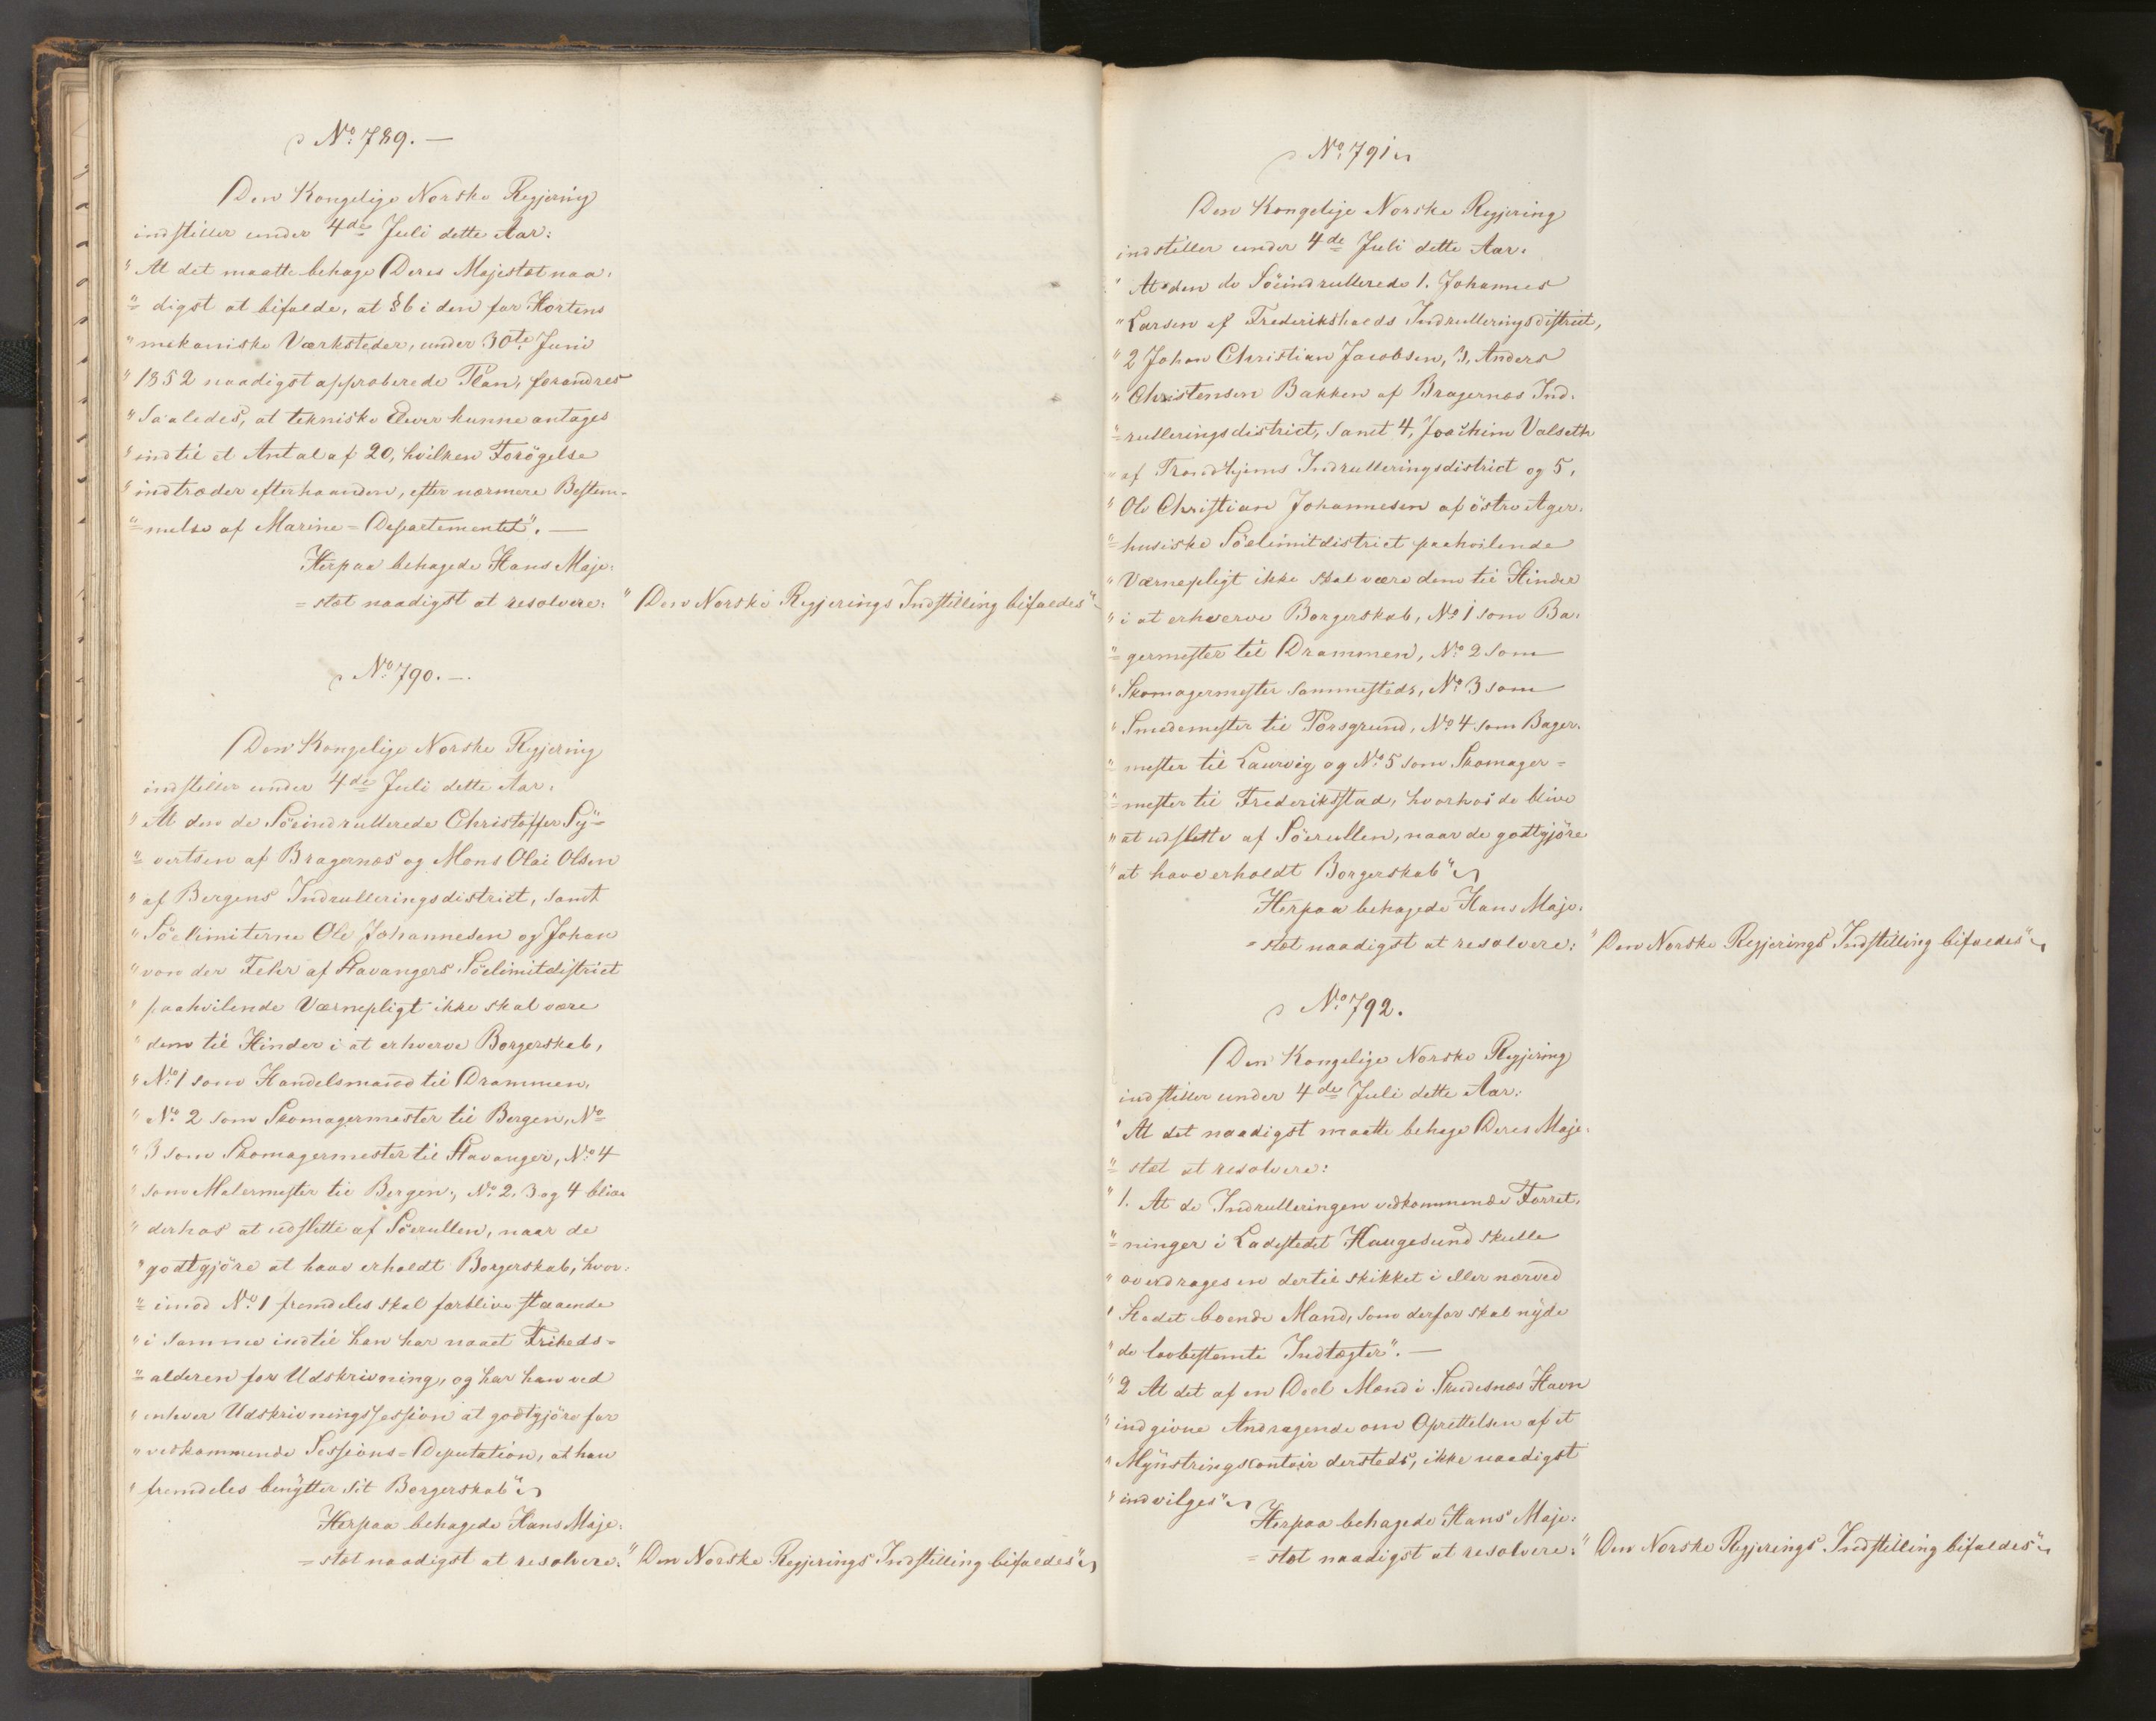 No. 789. —
Den Kongelige Norske Regjering
indstiller under 4de Juli dette Aar:
"At det maatte behage Deres Majestæt naa-
"= digst at bifalde, at § 6 i den for Hortens
"mekaniske Værksteder, under 30te Juni
"1852 naadigst approberede Plan, forandres
"saaledes, at tekniske Elever kunne antages
"indtil et Antal af 20, hvilken Forögelse
"indtræder efterhaanden, efter nærmere Bestem-
"= melse af Marine=Departementet". —
Herpaa behagede Hans Maje-
= stæt naadigst at resolvere: "Den Norske Regjerings Indstilling bifaldes"
No. 790. —.
Den Kongelige Norske Regjering
indstiller under 4de Juli dette Aar:
"At den de Söeindrullerede Christoffer Sy-
"= vertsen af Bragernæs og Mons Olai Olsen
"af Bergens Indrulleringsdistrict, samt
"Söelimiterne Ole Johannesen og Johan
"von der Fehr af Stavangers Söelimitdistrict
"paahvilende Værnepligt ikke skal være
"dem til Hinder i at erhverve Borgerskab,
"No. 1 som Handelsmand til Drammen,
"No. 2 som Skomagermester til Bergen, No.
"3 som Skomagermester til Stavanger, No. 4
"som Malermester til Bergen; No. 2, 3 og 4 blive
"derhos at udslette af Söerullen, naar de
"godtgjöre at have erholdt Borgerskab, hvor-
"= imod No. 1 fremdeles skal forblive staaende
"i samme indtil han har naaet Friheds=
"= alderen for Udskrivning, og har han ved
"enhver Udskrivningssession at godtgjöre for
"vedkommende Sessions=Deputation, at han
"fremdeles benytter sit Borgerskab"
Herpaa behagede Hans Maje-
= stæt naadigst at resolvere: "Den Norske Regjerings Indstilling bifaldes"
No. 791
Den Kongelige Norske Regjering
indstiller under 4de Juli dette Aar:
"At den de Söeindrullerede 1. Johannes
"Larsen af Frederikshalds Indrulleringsdistrict,
"2 Johan Christian Jacobsen, 3, Anders
"Christensen Bakken af Bragernæs Ind-
"= rulleringsdistrict, samt 4, Joachim Valseth
"af Trondhjems Indrulleringsdistrict og 5,
"Ole Christian Johannesen af östre Ager-
"= husiske Söelimitdistrict paahvilende
"Værnepligt ikke skal være dem til Hinder
"i at erhverve Borgerskab, No. 1 som Ba-
"= germester til Drammen, No. 2 som
"Skomagermester sammesteds, No. 3 som
"Smedemester til Porsgrund, No. 4 som Bager-
"= mester til Laurvig og No. 5 som Skomager=
"= mester til Frederiksstad, hvorhos de blive
"at udslette af Söerullen, naar de godtgjöre
"at have erholdt Borgerskab"
Herpaa behagede Hans Maje-
= stæt naadigst at resolvere: "Den Norske Regjerings Indstilling bifaldes"
No. 792.
Den Kongelige Norske Regjering
indstiller under 4de Juli dette Aar:
"At det naadigst maatte behage Deres Maje-
"= stæt at resolvere:
"1. At de Indrulleringen vedkommende Forret-
"= ninger i Ladestedet Haugesund skulle
"overdrages en dertil skikket i eller nærved
"Stedet boende Mand, som derfor skal nyde
"de lovbestemte Indtægter". —
"2 At det af en Deel Mænd i Skudesnæs Havn
"indgivne Andragende om Oprettelsen af et
"Mynstringscontoir dersteds, ikke naadigst
"indvilges"
Herpaa behagede Hans Maje-
= stæt naadigst at resolvere: "Den Norske Regjerings Indstilling bifaldes"